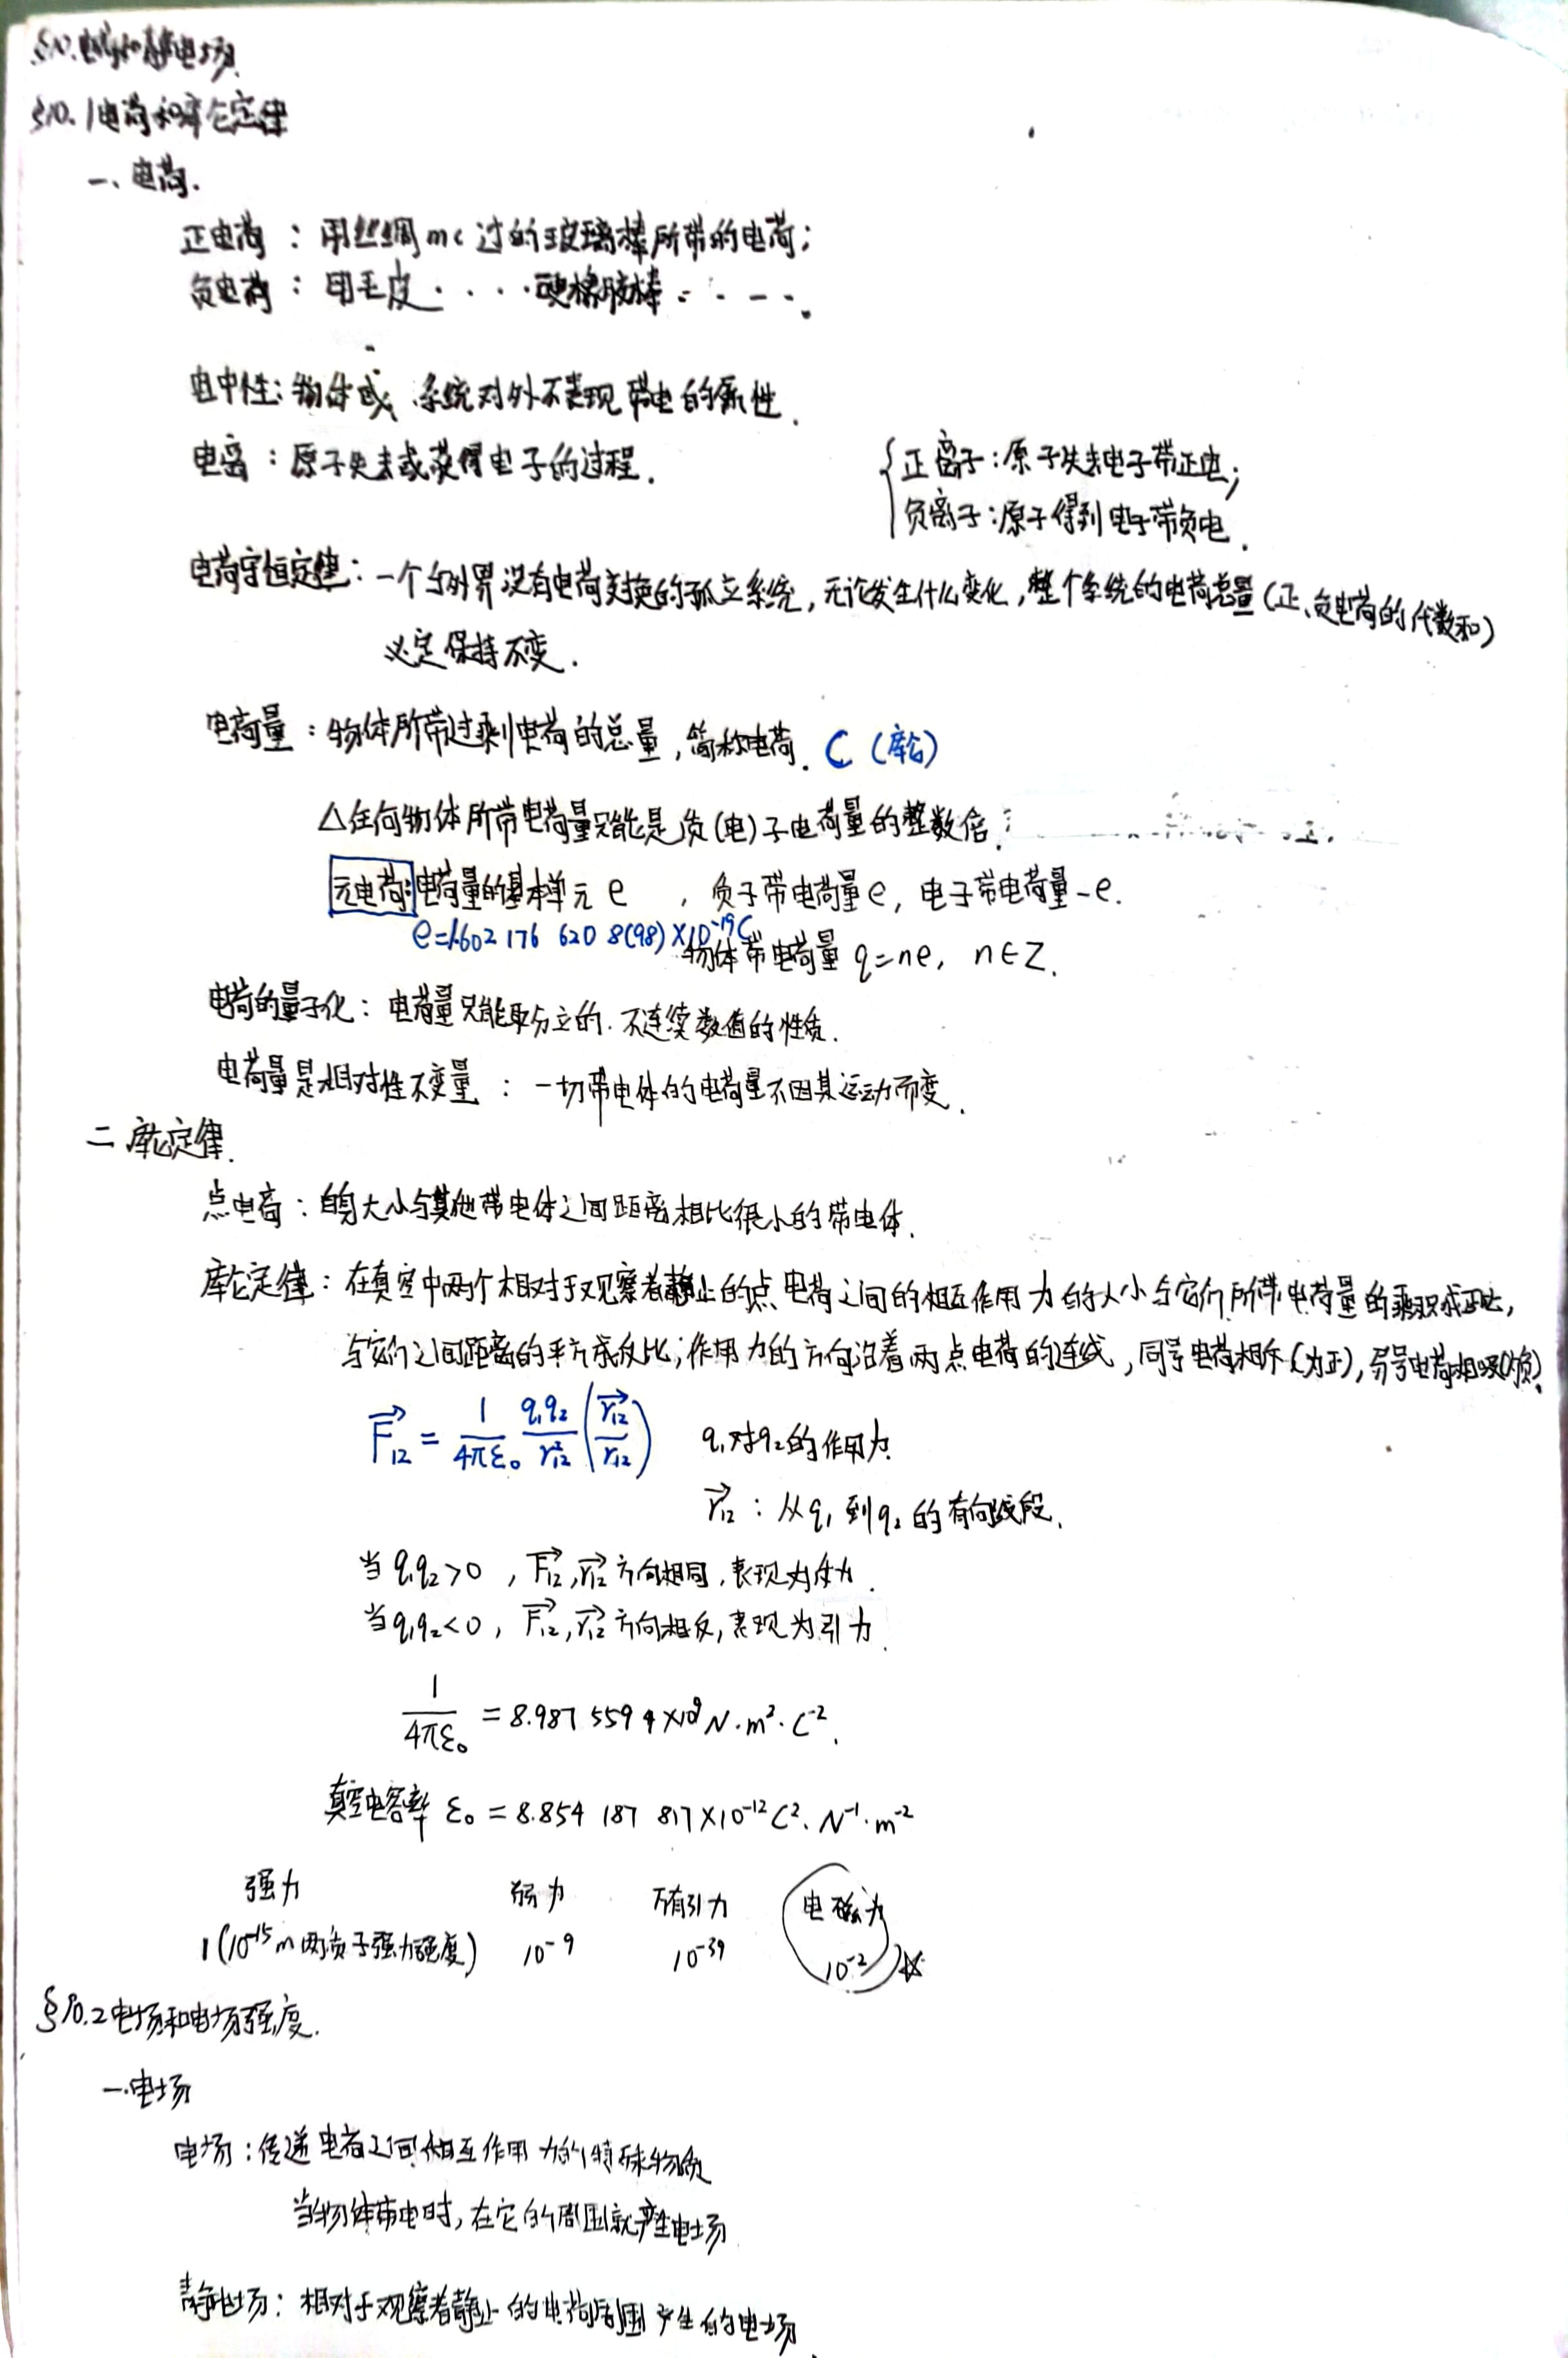 §10.电荷和静电场.
§10.1电荷和库仑定律
一、电荷.
正电荷：用丝绸mc过的玻璃棒所带的电荷；
负电荷：用毛皮····硬橡胶棒·····。
电中性：物体或系统对外不表现带电的属性.
电离：原子失去或获得电子的过程.
{正离子：原子失去电子带正电；
负离子：原子得到电子带负电.
电荷守恒定律：一个与外界没有电荷交换的孤立系统,无论发生什么变化,整个系统的电荷总量(正、负电荷的代数和)
必定保持不变.
电荷量：物体所带过剩电荷的总量,简称电荷. C (库仑)
△任何物体所带电荷量只能是质(电)子电荷量的整数倍.
元电荷:电荷量的基本单元 e ,质子带电荷量e,电子带电荷量-e.
e=1.602 176 620 8(98)×10⁻¹⁹C
物体带电荷量 q=ne, n∈Z.
电荷的量子化：电荷量只能取分立的.不连续数值的性质.
电荷量是相对性不变量：一切带电体的电荷量不因其运动而变.
二 库仑定律.
点电荷：自身大小与其他带电体之间距离相比很小的带电体.
库仑定律：在真空中两个相对于观察者静止的点电荷之间的相互作用力的大小与它们所带电荷量的乘积成正比,
与它们之间距离的平方成反比;作用力的方向沿着两点电荷的连线,同号电荷相斥(为正),异号电荷相吸(为负).
F₁₂⃗ = 1/4πε₀ q₁q₂/r₁₂² (r₁₂⃗/r₁₂) q₁对q₂的作用力.
r₁₂⃗：从q₁到q₂的有向线段.
当q₁q₂>0,F₁₂⃗,r₁₂⃗方向相同,表现为斥力.
当q₁q₂<0,F₁₂⃗,r₁₂⃗方向相反,表现为引力.
1/4πε₀ = 8.987 559 4×10⁹N·m²·C⁻².
真空电容率 ε₀ = 8.854 187 817×10⁻¹²C²·N⁻¹·m⁻²
强力 弱力 万有引力 电磁力
1(10⁻¹⁵m两质子强力强度) 10⁻⁹ 10⁻³⁹ 10⁻² ☆
§10.2电场和电场强度.
一.电场
电场：传递电荷之间相互作用力的特殊物质
当物体带电时,在它的周围就产生电场
静电场：相对于观察者静止的电荷周围产生的电场.